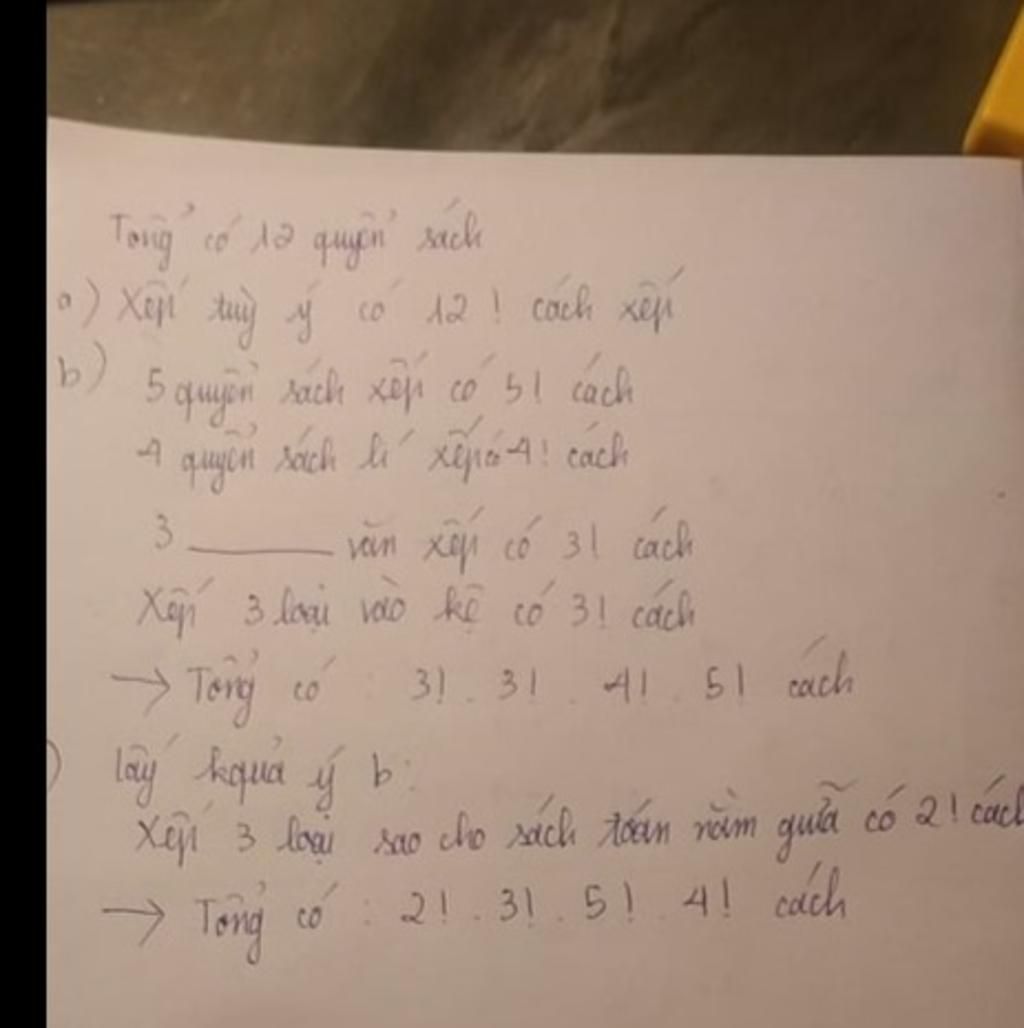 Tổng có 12 quyển sách
a) Xếp tuỳ ý có 12! cách xếp
b) 5 quyển sách xếp có 5! cách
4 quyển sách lí xếp có 4! cách
3 ______ văn xếp có 3! cách
Xếp 3 loại vào kệ có 3! cách
→ Tổng có : 3! . 3! . 4! . 5! cách
) lấy kquả ý b:
Xếp 3 loại sao cho sách toán nằm giữa có 2! cách
→ Tổng có : 2! . 3! . 5! . 4! cách